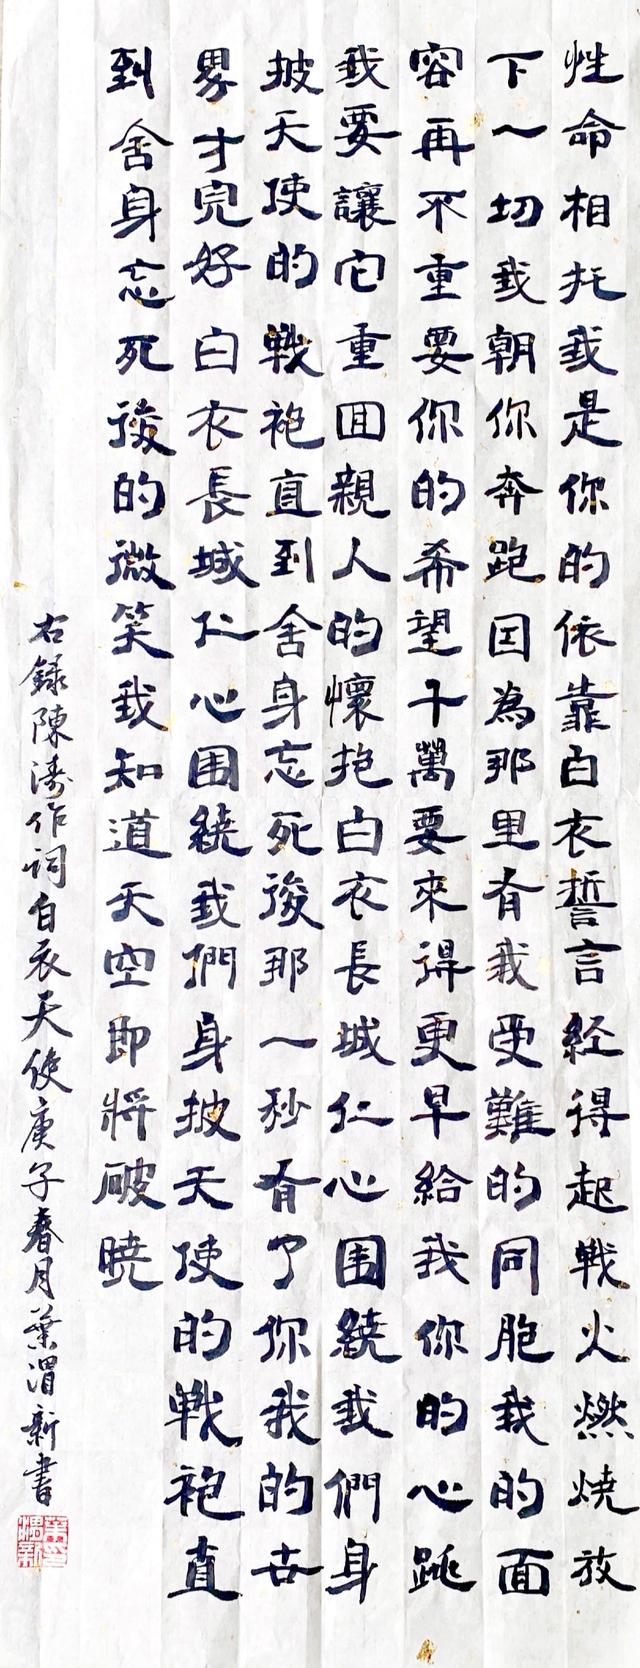 性命相托我是你的依靠白衣誓言经得起戰火燃燒放
下一切我朝你奔跑因為那里有我受難的同胞我的面
容再不重要你的希望千萬要來得更早給我你的心跳
我要讓它重回親人的懷抱白衣長城仁心围繞我們身
披天使的戰袍直到舍身忘死後那一秒有了你我的世
界才完好白衣長城仁心围繞我們身披天使的戰袍直
到舍身忘死後的微笑我知道天空即將破曉
右錄陳濤作詞白衣天使庚子春月葉渭新書
葉渭新印